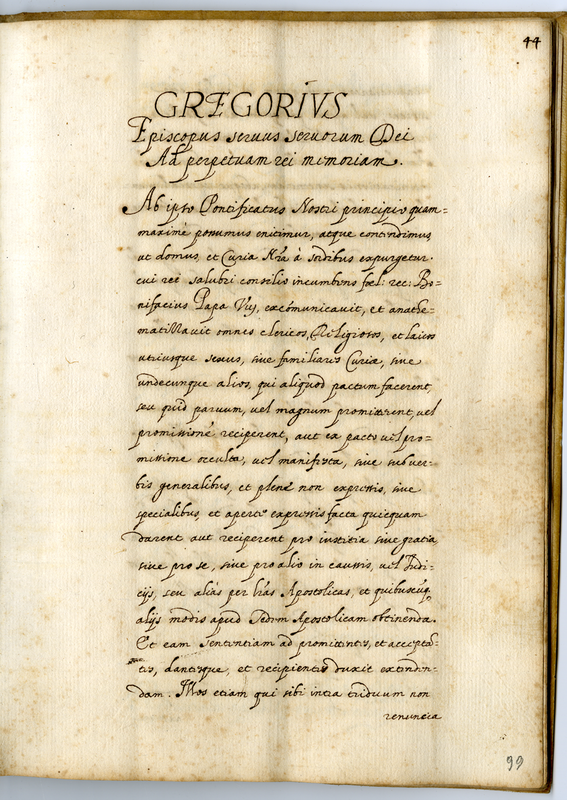 44
GREGORIVS
Episcopus seruus seruorum Dei
Ad perpetuam rei memoriam.
Ab ipso Pontificatus Nostri principio quam=
maximè possumus enitimur, atque contendimus
ut domus, et Curia Nrã à sordibus expurgetur.
cui rei salubri consilio incumbens foel: rec: Bo=
nifacius Papa Viij, excõmunicauit, et anathe=
matizzauit omnes clericos, Religiosos, et laicos
utriusque sexus, siue familiares Curiæ, siue
undecunque alios, qui aliquod pactum facerent,
seu quid paruum, uel magnum promitterent, uel
promissionẽ reciperent, aut ex pacto uel pro=
missione occulta, uel manifesta, siue sub uer=
bis generalibus, et plenè non expressis, siue
specialibus, et apertè expressis facta quicquam
darent aut reciperent pro iustitia siue gratia
siue pro se, siue pro alio in caussis, uel Iudi=
cijs, seu aliàs per lrãs Apostolicas, et quibuscũq;
alijs modis apud Sedem Apostolicam obtinenda.
Et eam sententiam ad promittentes, et accepta=
tes, dantesque, et recipientes duxit extenden=
dam. Illos etiam qui sibi intra triduum non
renuncia
99